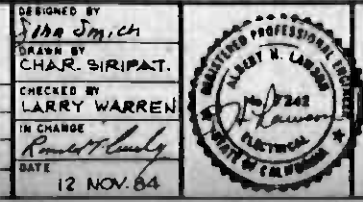 DESIGNED BY
John Smich
DRAWN BY
CHAR. SIRIPAT.
CHECKED BY
LARRY WARREN
IN CHANGE
DATE
12 NOV. 84
REGISTERED PROFESSIONAL ENGINEER
ALBERT N. LAWSON
No. 7242
ELECTRICAL
STATE OF CALIFORNIA